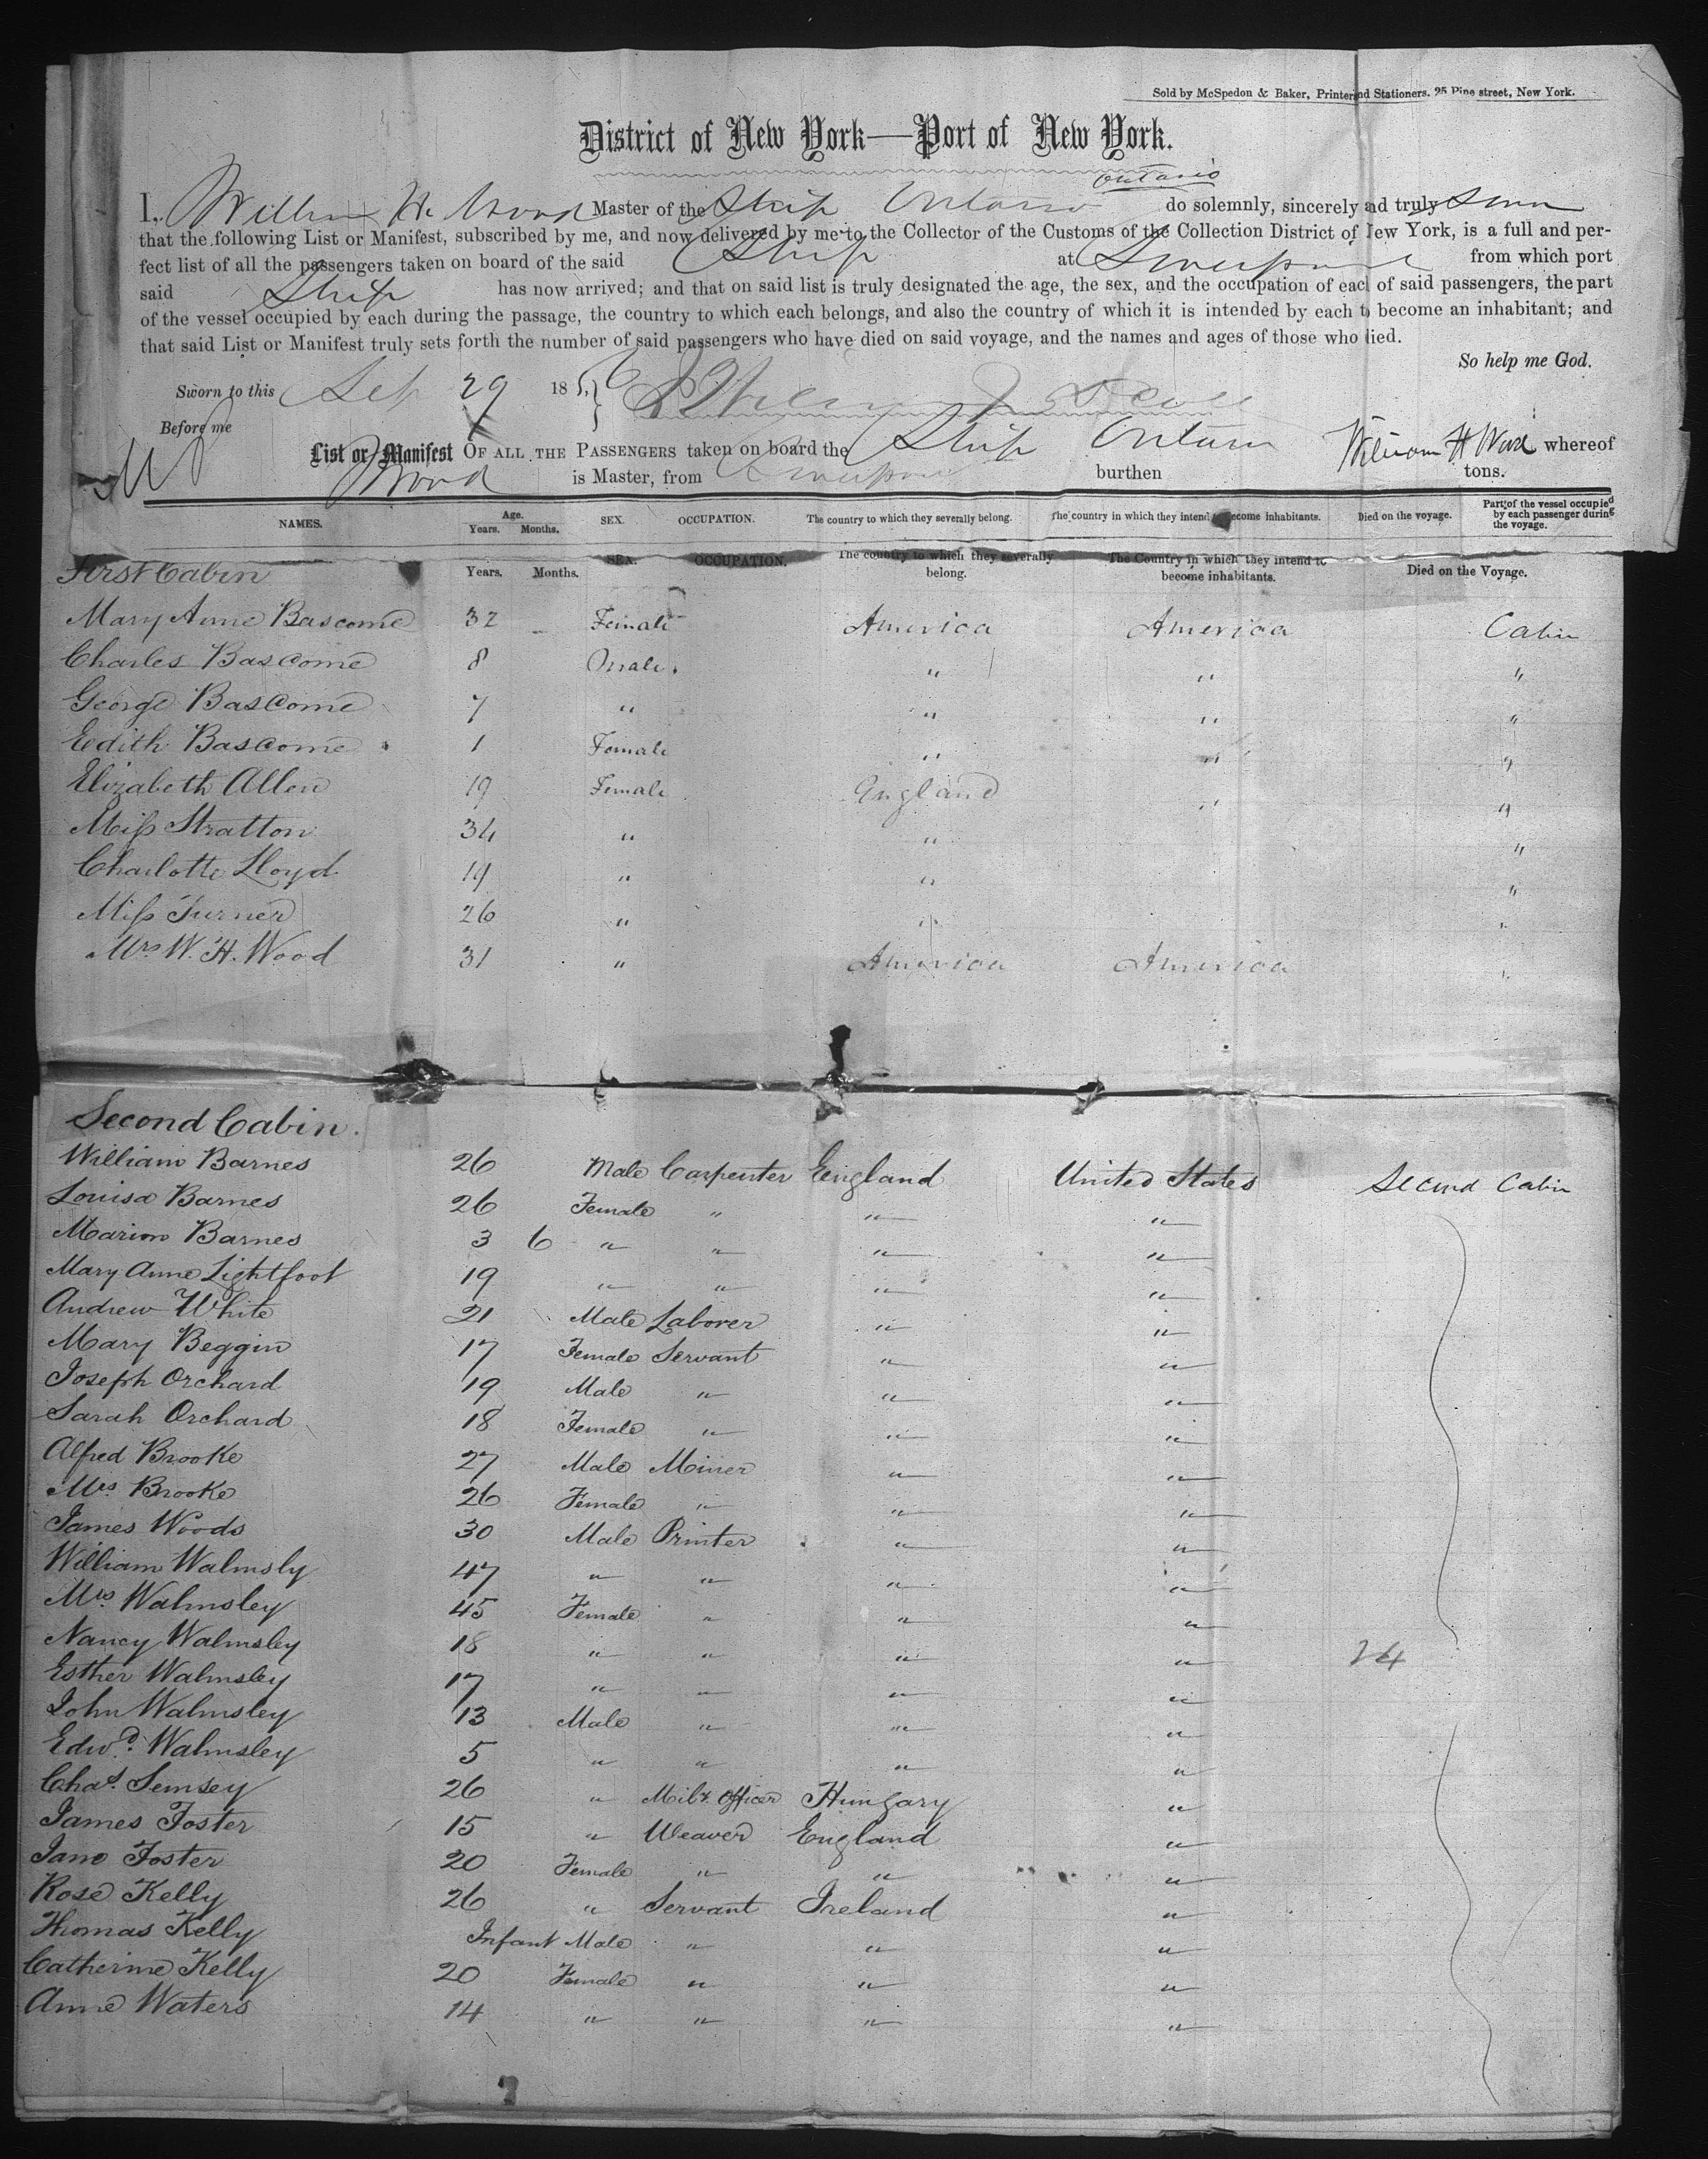 Sold by McSpedon & Baker, Printers and Stationers. 25 Pine street, New York.
District of New York—Port of New York.
Ontario
I, William H. Wood Master of the Ship Ontario do solemnly, sincerely and truly
that the following List or Manifest, subscribed by me, and now delivered by me to the Collector of the Customs of the Collection District of New York, is a full and per-
fect list of all the passengers taken on board of the said Ship at Liverpool from which port
said Ship has now arrived; and that on said list is truly designated the age, the sex, and the occupation of each of said passengers, the part
of the vessel occupied by each during the passage, the country to which each belongs, and also the country of which it is intended by each to become an inhabitant; and
that said List or Manifest truly sets forth the number of said passengers who have died on said voyage, and the names and ages of those who died.
So help me God.
Sworn to this Sep 29 185
Before me
List or Manifest OF ALL THE PASSENGERS taken on board the Ship Ontario William H Wood whereof
Wood is Master, from Liverpool burthen tons.
NAMES. Age. Years. Months. SEX. OCCUPATION. The country to which they severally belong. The country in which they intend to become inhabitants. Died on the voyage. Part of the vessel occupied by each passenger during the voyage.
First Cabin Years. Months. SEX. OCCUPATION. The country to which they severally belong. The Country in which they intend to become inhabitants. Died on the Voyage.
Mary Anne Bascome 32 Female America America Cabin
Charles Bascome 8 Male " " "
George Bascome 7 " " " "
Eedith Bascome 1 Female " " "
Elizabeth Allen 19 Female England " "
Miss Stratton 34 " " "
Charlotte Lloyd 19 " " "
Miss Turner 26 " " "
Mrs W. H. Wood 31 " America America "
Second Cabin.
William Barnes 26 Male Carpenter England United States Second Cabin
Louisa Barnes 26 Female " " "
Marion Barnes 3 6 " " " "
Mary Anne Lightfoot 19 " " " "
Andrew White 21 Male Laborer " "
Mary Beggin 17 Female Servant " "
Joseph Orchard 19 Male " " "
Sarah Orchard 18 Female " " "
Alfred Brooke 27 Male Miner " "
Mrs Brooke 26 Female " " "
James Woods 30 Male Printer " "
William Walmsly 47 " " " "
Mrs. Walmsley 45 Female " " "
Nancy Walmsley 18 " " " " 24
Esther Walmsley 17 " " " "
John Walmsley 13 Male " " "
Edwd. Walmsley 5 " " " "
Chas. Semsey 26 " Mily. Officer Hungary "
James Foster 15 " Weaver England "
Jane Foster 20 Female " " "
Rose Kelly 26 " Servant Ireland "
Thomas Kelly Infant Male " " "
Catherine Kelly 20 Female " " "
Anne Waters 14 " " " "